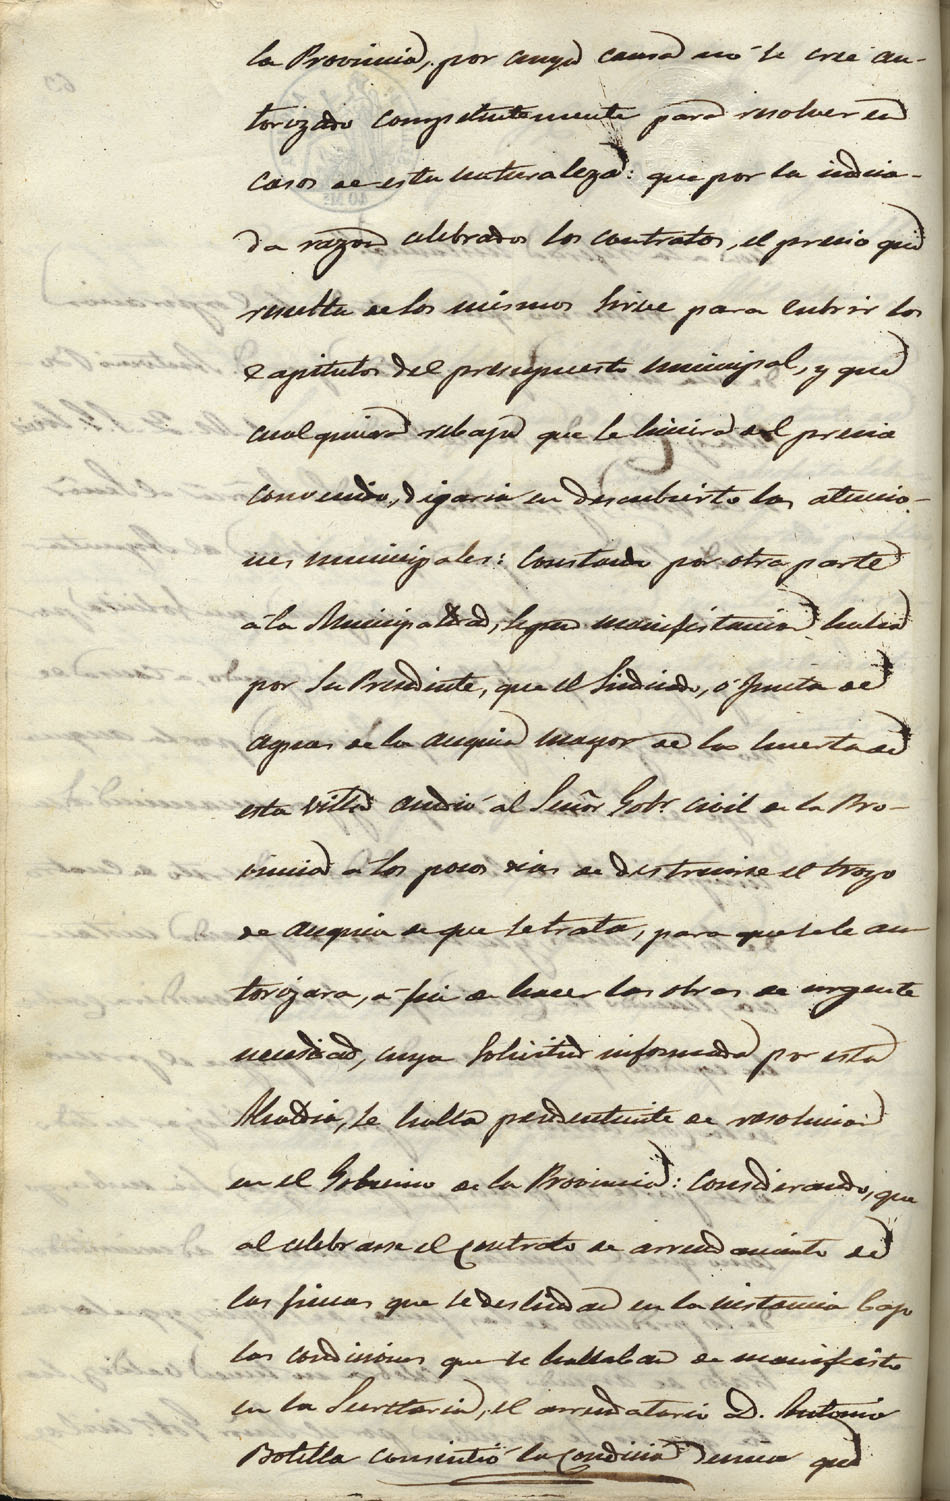 la Provincia, por cuya causa no se cree au-
torizado competentemente para resolver en
casos de esta naturaleza: que por la indica-
da razon celebrados los contratos, el precio que
resulta de los mismos sirve para cubrir los
capitulos del presupuesto municipal, y que
cualquiera rebaja que se hiciera del precio
convenido, dejaria en descubierto las atencio-
nes municipales: Constando por otra parte
á la Municipalidad, segun manifestacion hecha
por su Presidente, que el Sindicado, ó Junta de
aguas de la acequia mayor de la huerta de
esta villa acudió al Señor Gobr. civil de la Pro-
vincia á los pocos dias de destruirse el trozo
de acequia de que se trata, para que se le au-
torizara, á fin de hacer las obras de urgente
necesidad, cuya solicitud informada por esta
Alcaldia, se halla pendiente de resolucion
en el Gobierno de la Provincia: Considerando, que
al celebrarse el contrato de arrendamiento de
las fincas que se deslindan en la instancia bajo
las condiciones que se hallaban de manifiesto
en la Secretaria, el arrendatario D. Antonio
Botella consintió la condicion decima que